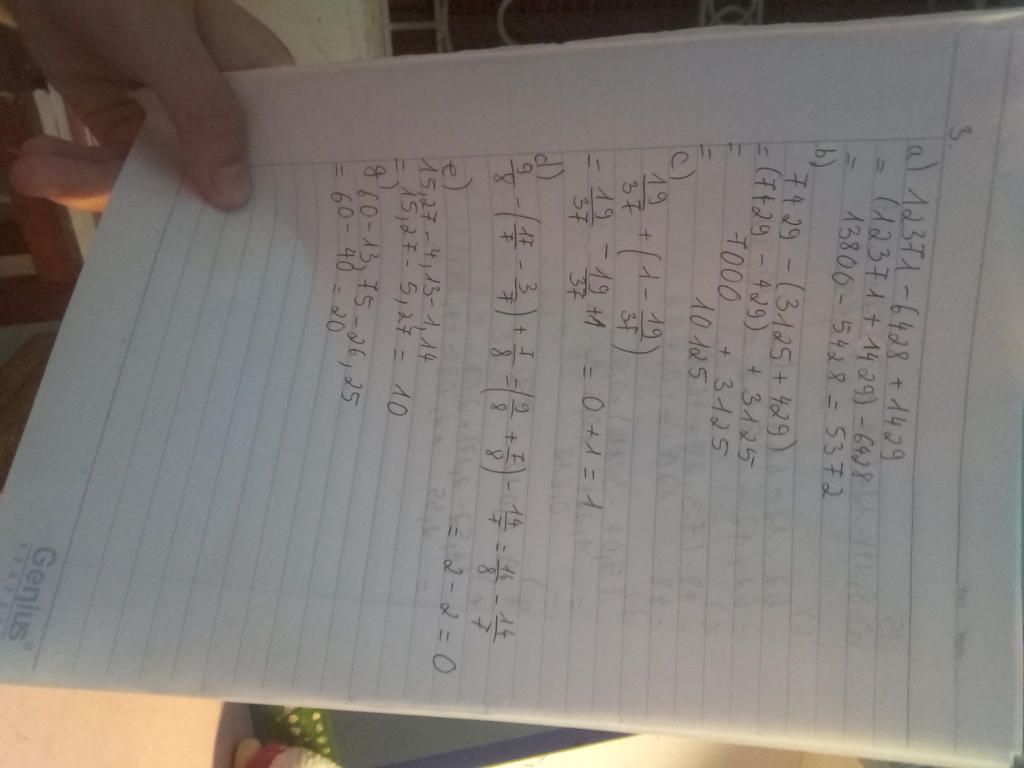 3.
a) 12371 - 6428 + 1429
= (12371 + 1429) - 6428
= 13800 - 5428 = 5372
b)
7429 - (3125 + 429)
= (7429 - 429) + 3125
= 7000 + 3125
= 10125
c)
19/37 + (1 - 19/37)
= 19/37 - 19/37 + 1 = 0 + 1 = 1
d)
9/8 - (17/7 - 3/7) + 7/8 = (9/8 + 7/8) - 14/7 = 16/8 - 14/7
= 2 - 2 = 0
e)
15,27 - 4,13 - 1,14
= 15,27 - 5,27 = 10
g) 60 - 13,75 - 26,25
= 60 - 40 = 20
Genius